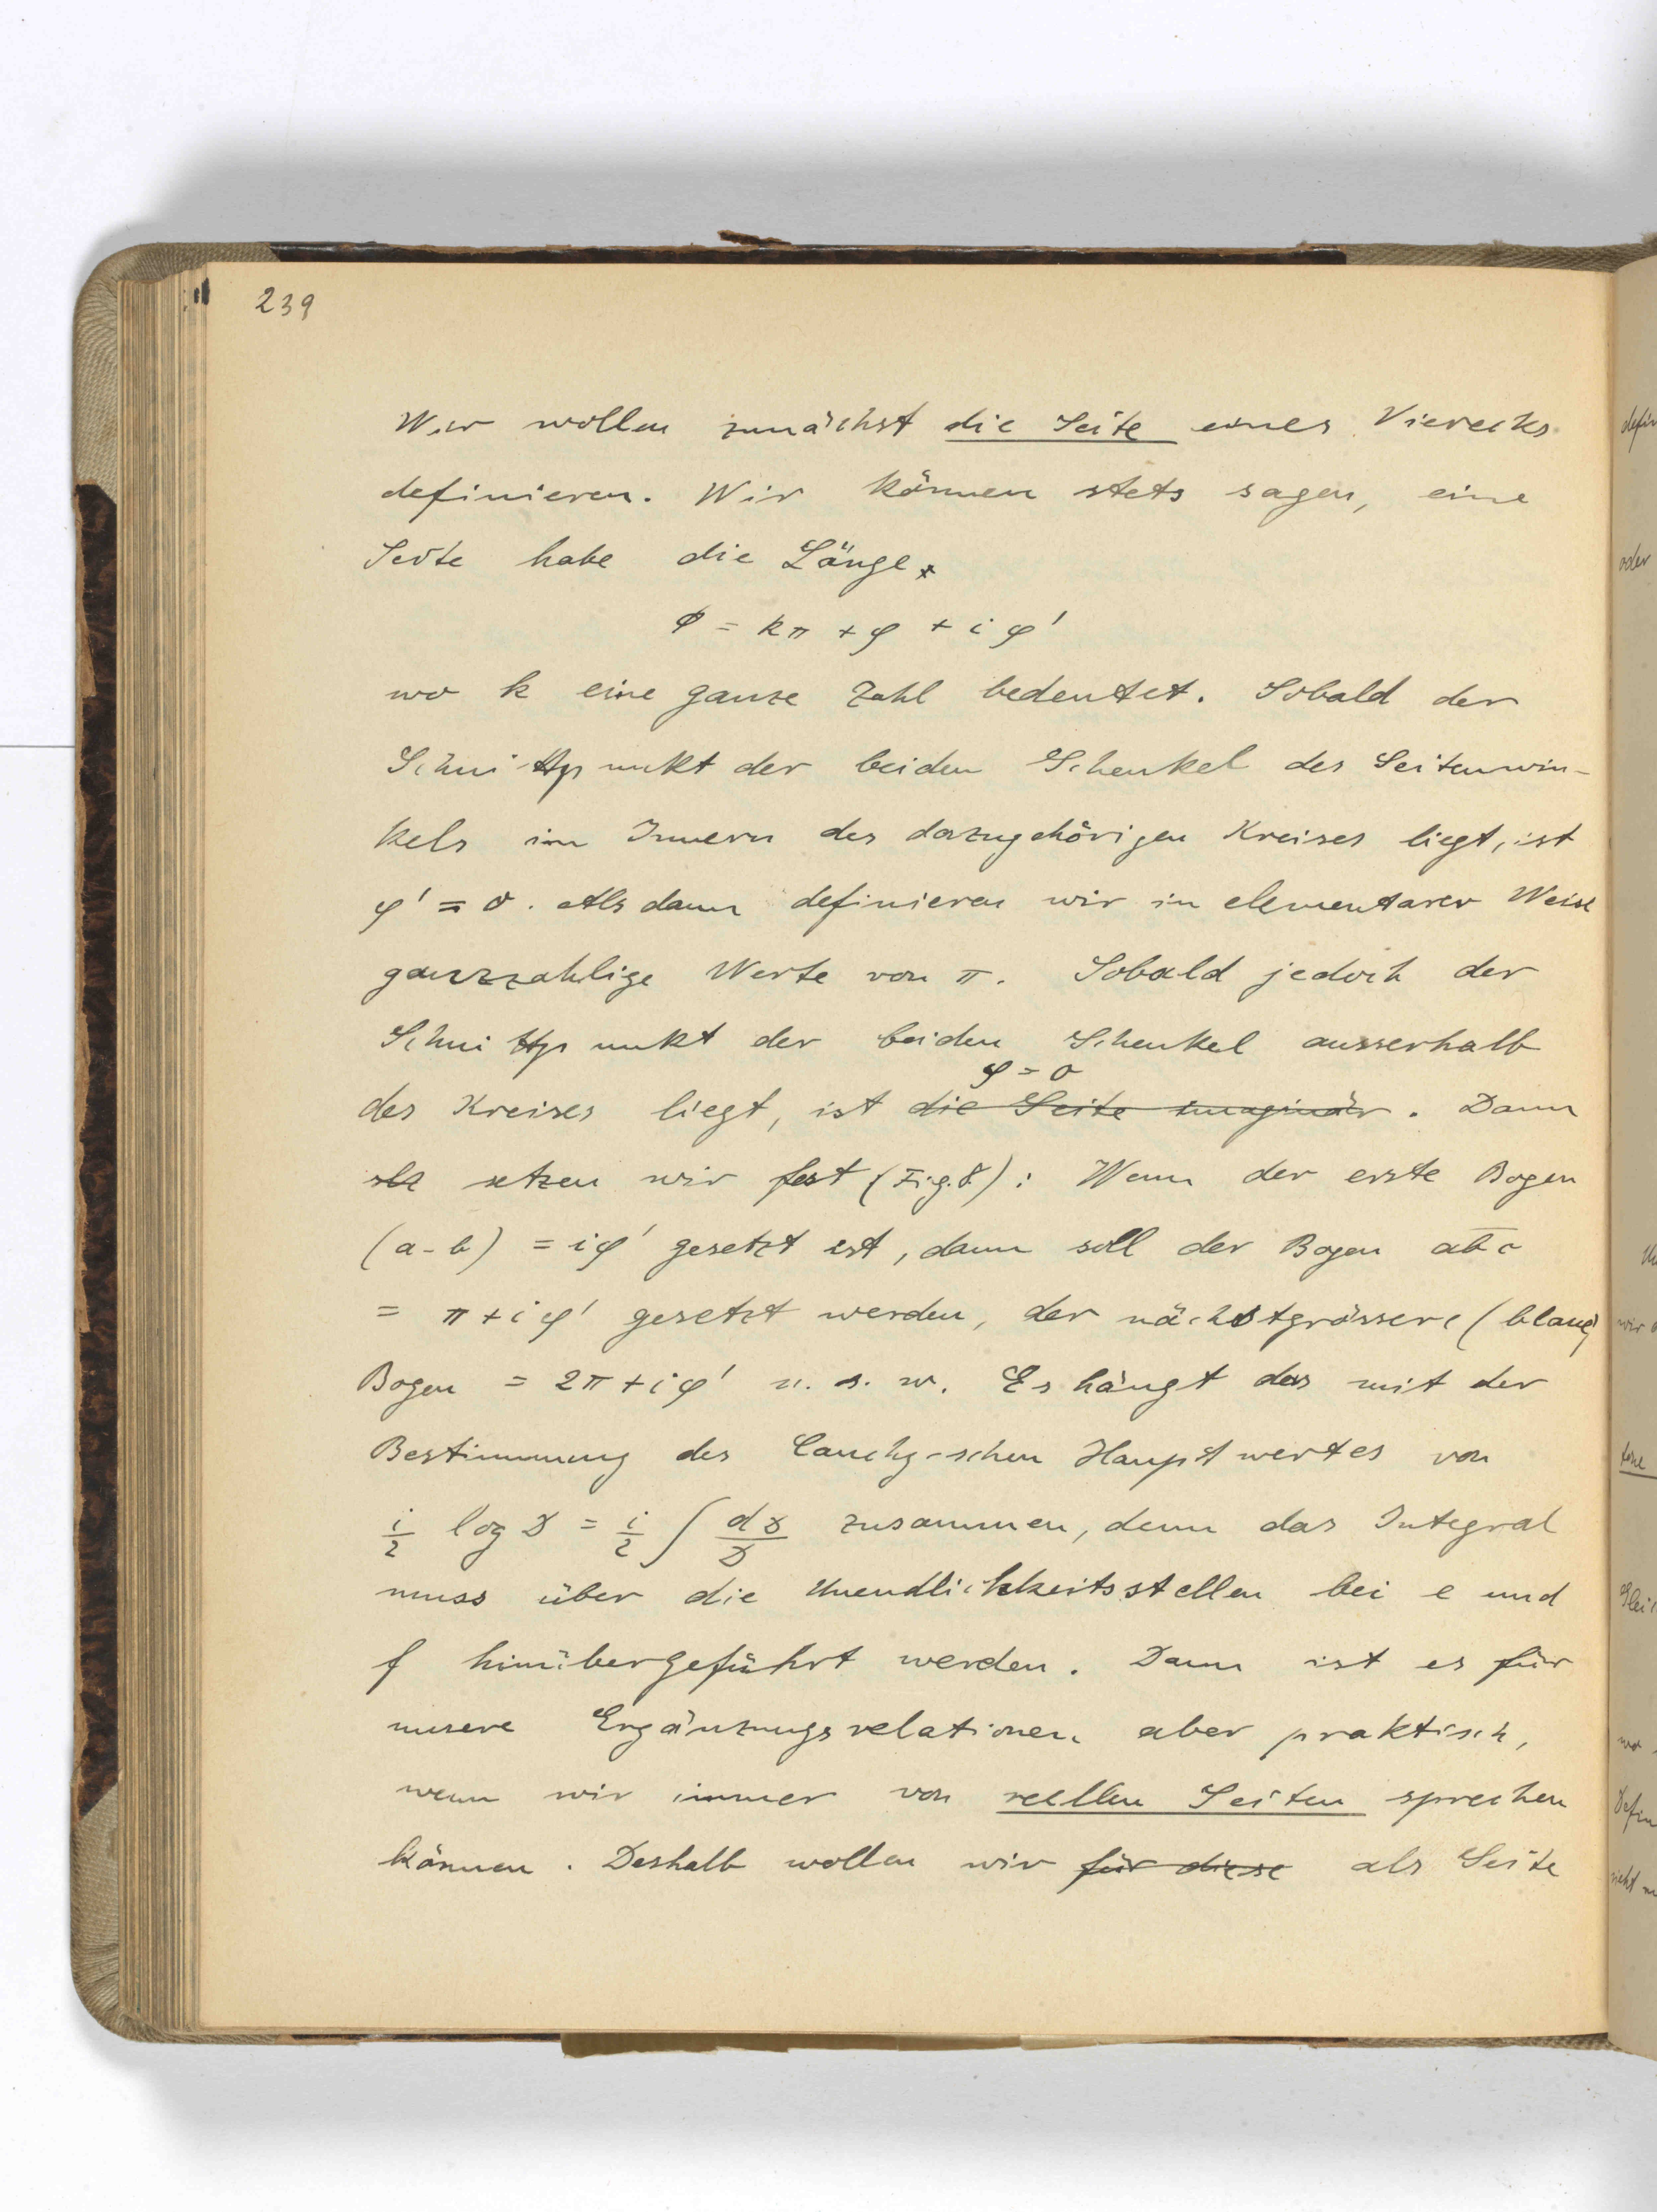 239
Wir wollen zunächst die Seite eines Vierecks
definieren. Wir können stets sagen, eine
Seite habe die Länge
Φ = kπ + φ + iφ'
wo k eine ganze Zahl bedeutet. Sobald der
Schnittpunkt der beiden Schenkel des Seitenwin-
kels im Innern des dazugehörigen Kreises liegt, ist
φ' = 0. Alsdann definieren wir in elementarer Weise
ganzzahlige Werte von π. Sobald jedoch der
Schnittpunkt der beiden Schenkel ausserhalb
φ = 0
des Kreises liegt, ist die Seite imaginär. Dann
setzen wir fest (Fig. 8): Wenn der erste Bogen
(a-b) = iφ' gesetzt ist, dann soll der Bogen abc
= π + iφ' gesetzt werden, der nächstgrössere (blaue)
Bogen = 2π + iφ' u. s. w. Es hängt das mit der
Bestimmung des Cauchy-schen Hauptwertes von
i/2 log D = i/2 ∫ dD/D zusammen, denn das Integral
muss über die Unendlichkeitsstellen bei e und
f hinübergeführt werden. Dann ist es für
unsere Ergänzungsrelationen aber praktisch,
wenn wir immer von reellen Seiten sprechen
können. Deshalb wollen wir für diese als Seite
defin
oder
wir